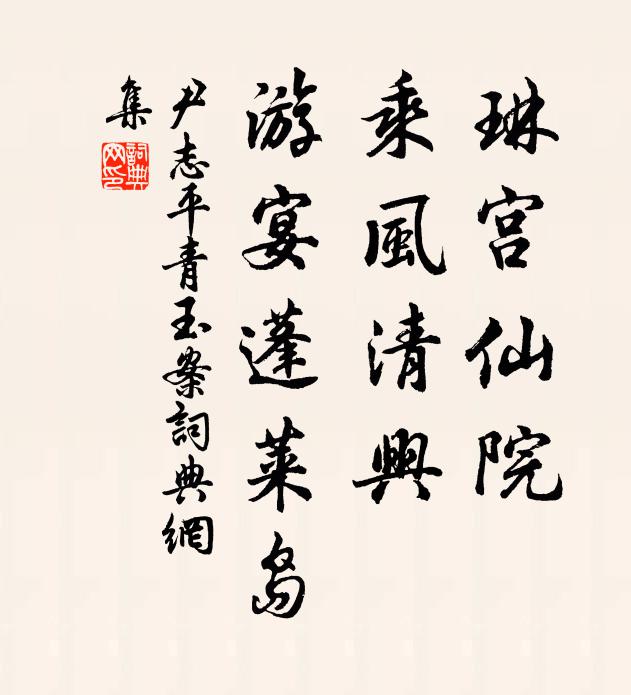 琳宫仙院
乘風清興
游宴蓬萊島
尹志平青玉案詞典網
集
詞典
网印